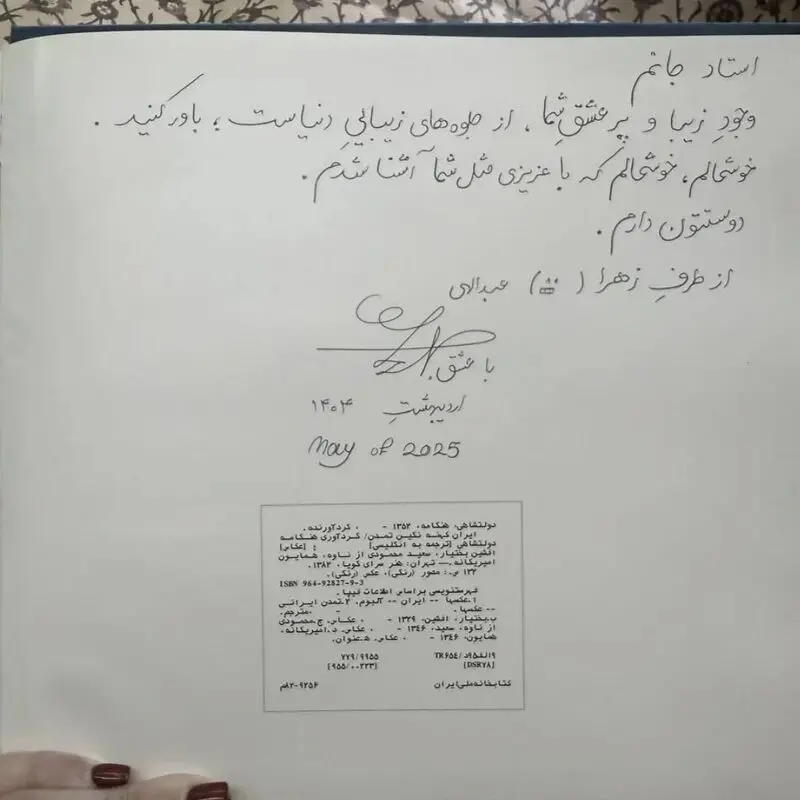 استاد جانم
وجودِ زیبا و پر عشقِ شما، از جلوه‌های زیباییِ دنیاست، باور کنید.
خوشحالم، خوشحالم که با عزیزی مثل شما آشنا شدم.
دوستتون دارم.
از طرفِ زهرا ( ) عبدالهی
با عشق.
اردیبهشتِ ۱۴۰۴
May of 2025
دولتشاهی، هنگامه، ۱۳۵۲ - ، گردآورنده.
ایران کهنه نگین تمدن/ گردآوری هنگامه
دولتشاهی [ترجمه به انگلیسی] ؛ [عکاس]
افشین بختیار، سعید محمودی از ناوه، همایون
امیریگانه.— تهران: هنر سرای گویا، ۱۳۸۲.
۱۳۲ ص.: مصور (رنگی)، عکس (رنگی).
ISBN 964-92827-9-3
فهرستنویسی براساس اطلاعات فیپا.
۱.عکسها -- ایران -- آلبوم. ۲.تمدن ایرانی
-- عکسها. ، مترجم.
ب.بختیار، افشین، ۱۳۲۹ - ، عکاس. ج.محمودی
از ناوه، سعید، ۱۳۴۶ - ، عکاس. د.امیریگانه،
همایون، ۱۳۴۶ - ، عکاس. ه.عنوان.
۷۷۹/۹۹۵۵
[۹۵۵/۰۰۲۲۳]
[DSR۷۸]
کتابخانه ملی ایران ۸۲-۹۲۵۶م